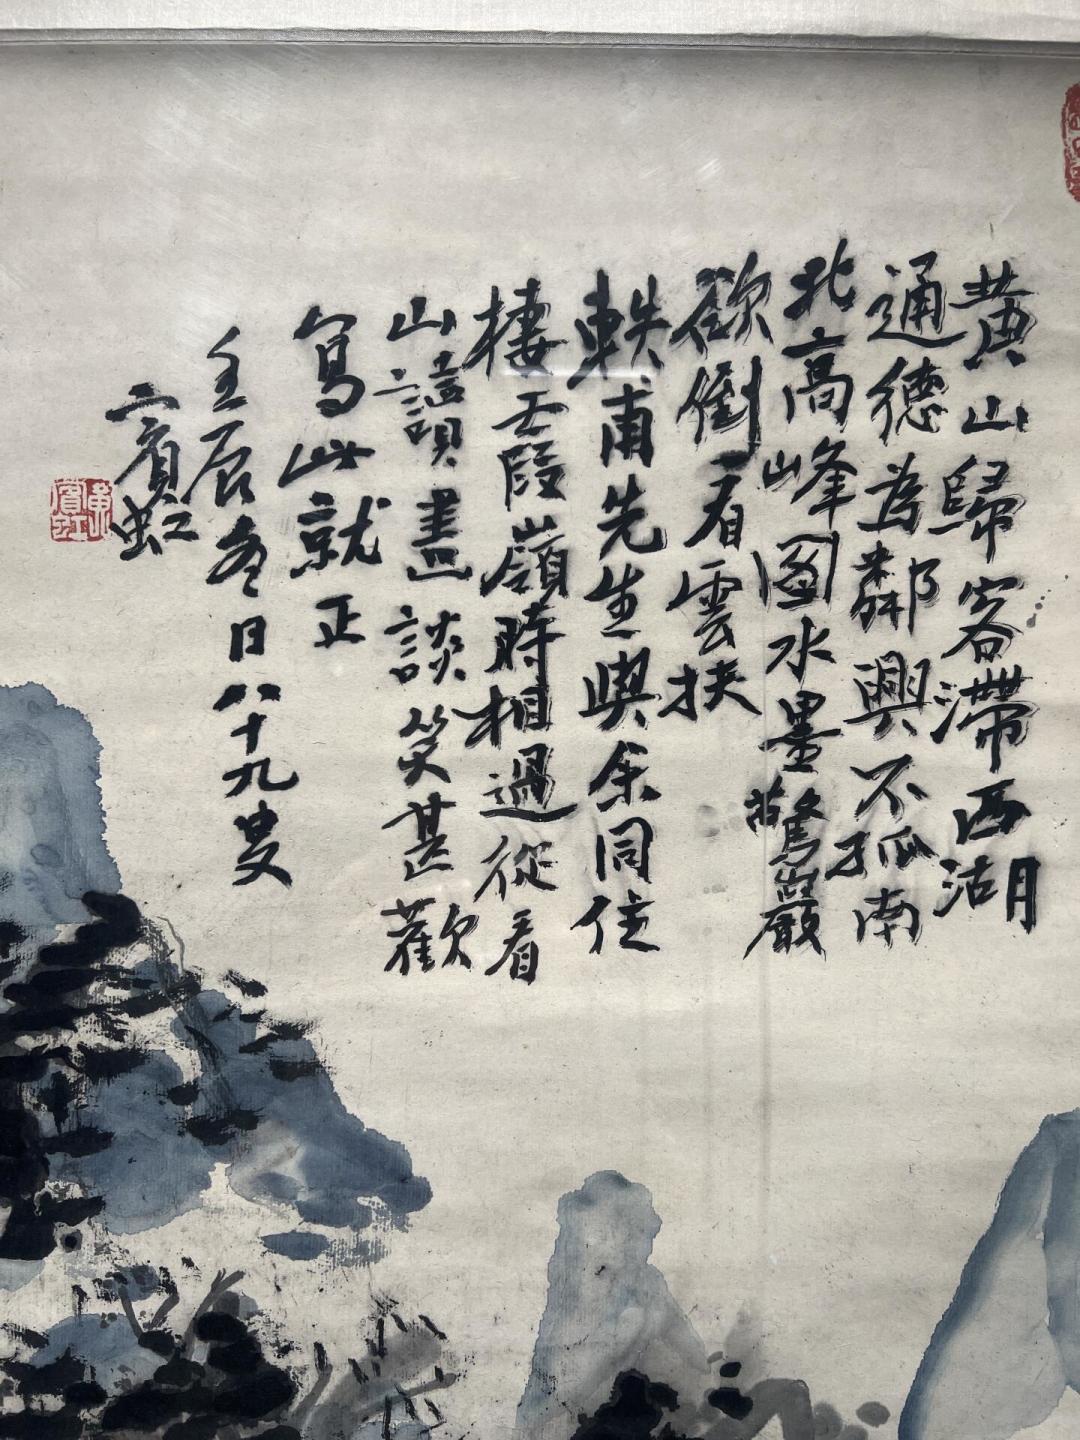 黄山歸客滯西湖
通德為鄰興不孤南
北高峰圖水墨驚巖
欲倒看雲扶
軼甫先生與余同住
棲霞嶺時相過從看
山讀畫談笑甚歡
寫此就正
壬辰冬日八十九叟
賓虹
黃賓虹